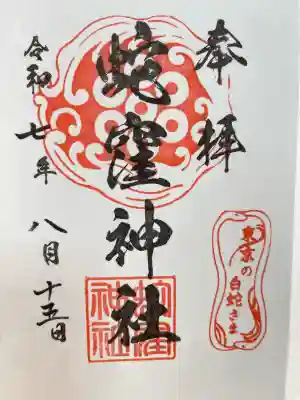 奉拝
蛇窪神社
令和七年 八月十五日
東京の
白蛇さま
蛇窪
神社